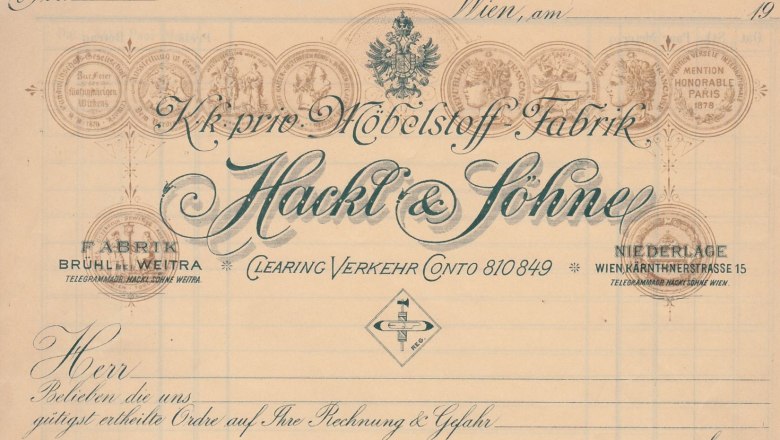 Wien, am 19
MENTION
HONORABLE
PARIS
1878
K.k. priv. Möbelstoff Fabrik
Hackl & Söhne
FABRIK
BRÜHL BEI WEITRA
TELEGRAMMADR. HACKL SÖHNE WEITRA.
CLEARING VERKEHR CONTO 810849
NIEDERLAGE
WIEN, KÄRNTHNERSTRASSE 15
TELEGRAMMADR. HACKL SÖHNE WIEN.
REG.
Herr
Belieben die uns
gütigst ertheilte Ordre auf Ihre Rechnung & Gefahr